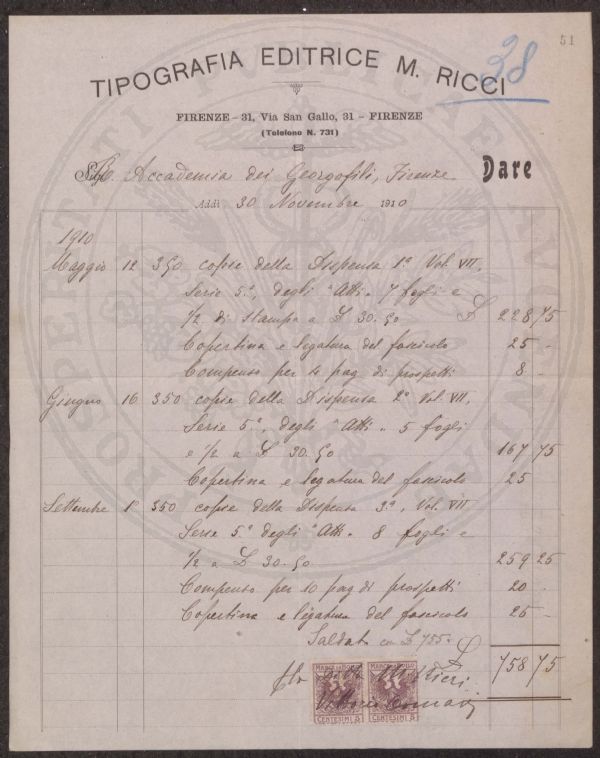 51
38
TIPOGRAFIA EDITRICE M. RICCI
FIRENZE – 31, Via San Gallo, 31 – FIRENZE
(Telefono N. 731)
R. Accademia dei Georgofili, Firenze Dare
Addì 30 Novembre 1910
1910
Maggio 12 350 copie della Dispensa 1ª Vol. VII,
Serie 5ª, degli "Atti" 7 fogli e
1/2 di stampa a £ 30.50 £ 228 75
Copertina e legatura del fascicolo 25 -
Compenso per 4 pag di prospetti 8 -
Giugno 16 350 copie della Dispensa 2ª Vol. VII,
Serie 5ª, degli "Atti" 5 fogli
e 1/2 a £ 30.50 167 75
Copertina e legatura del fascicolo 25
Settembre 1º 350 copie della Dispensa 3ª, Vol. VII
Serie 5ª degli "Atti" 8 fogli e
1/2 a £ 30.50 259 25
Compenso per 10 pag di prospetti 20 -
Copertina e legatura del fascicolo 25 -
Saldato in £ 755 -
£ 758 75
MARCA DA BOLLO MARCA DA BOLLO
M. Ricci
CENTESIMI 5 CENTESIMI 5
PROSPERITATI PVBLICAE AVGENDAE